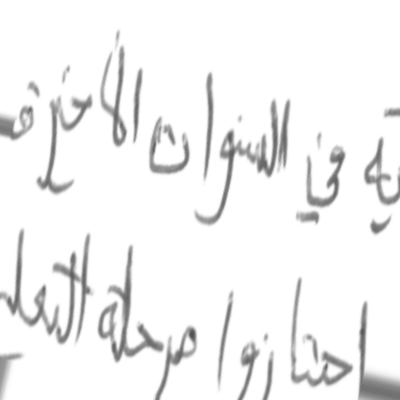 في السنوات الأخيرة
اجتازوا مرحلة التعلـ